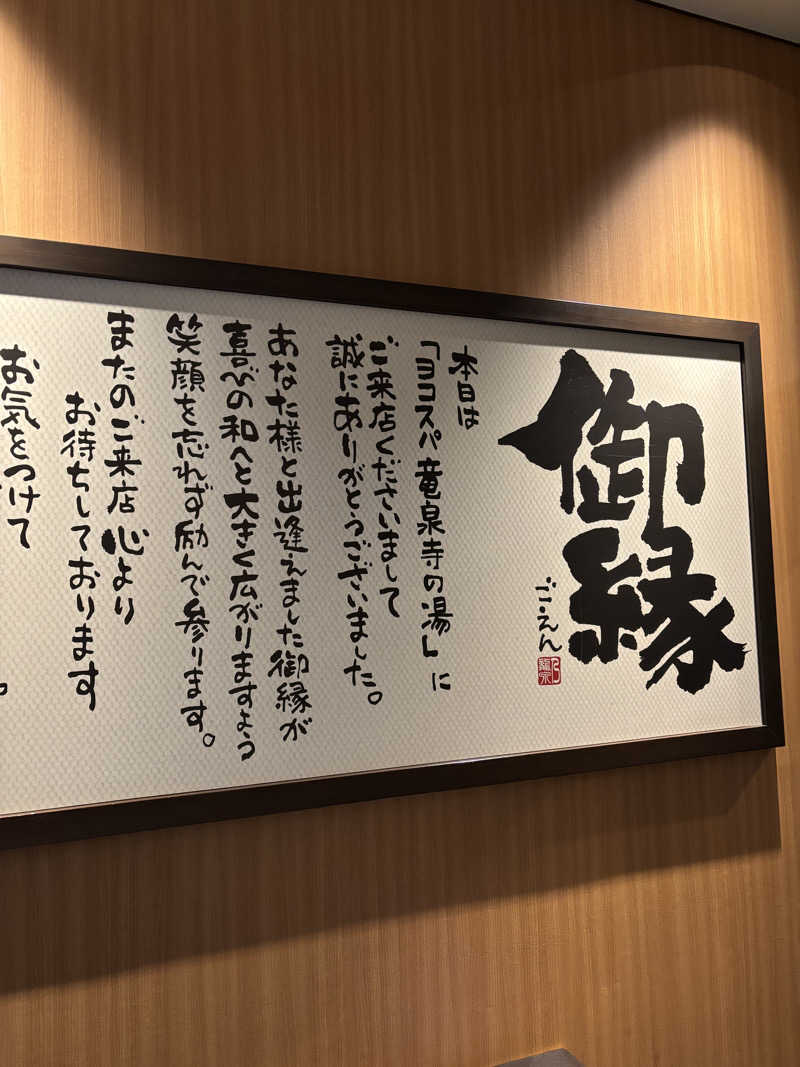 御縁
ご・えん
本日は
「ヨコスパ竜泉寺の湯」に
ご来店くださいまして
誠にありがとうございました。
あなた様と出逢えました御縁が
喜びの和へと大きく広がりますよう
笑顔を忘れず励んで参ります。
またのご来店心より
お待ちしております
お気をつけて